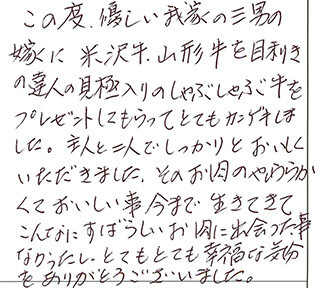 この度、優しい我家の三男の
嫁に 米沢牛、山形牛を目利き
の達人の見極入りのしゃぶしゃぶ牛を
プレゼントしてもらってとてもカンゲキしま
した。主人と二人でしっかりとおいしく
いただきました。そのお肉のやわらか
くておいしい事 今まで 生きてきて
こんなにすばらしいお肉に出会った事
なかったし、とてもとても幸福な気分
をありがとうございました。